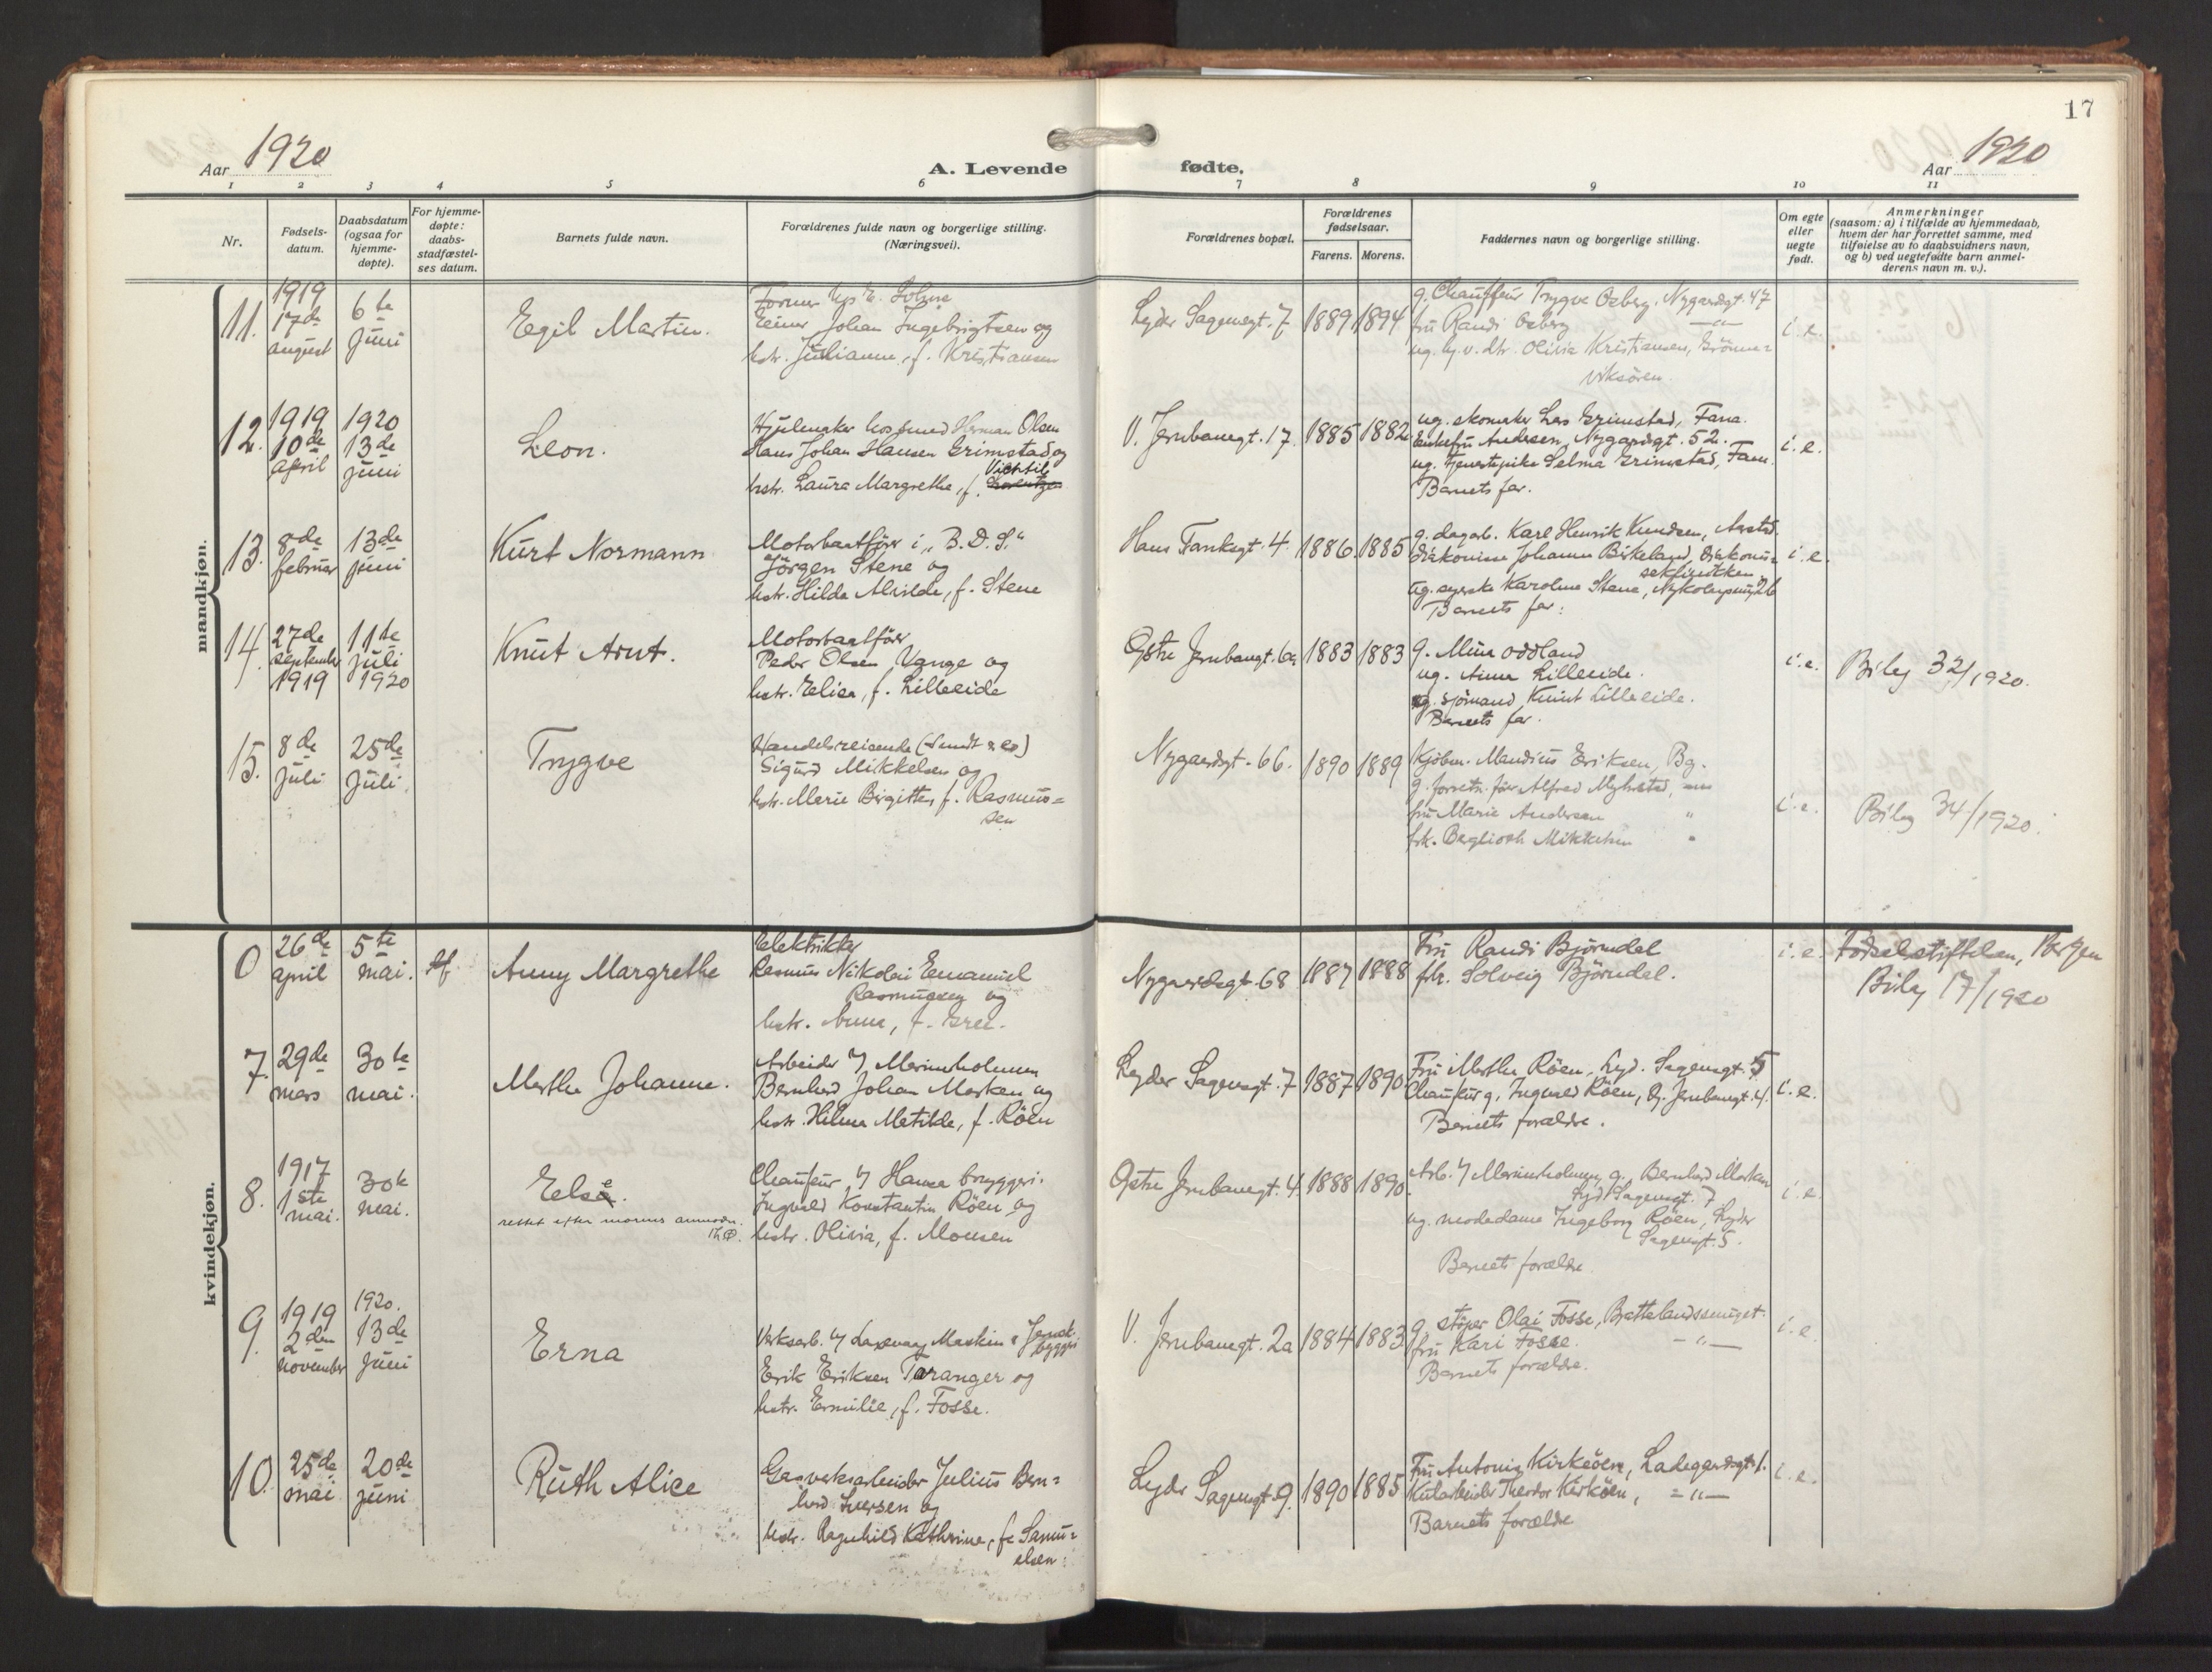 17
Aar 1920
A. Levende
fødte.
Aar 1920
1 2 3 4 5 6 7 8 9 10 11
Nr.
Fødsels-
datum.
Daabsdatum
(ogsaa for
hjemme-
døpte).
For hjemme-
døpte:
daabs-
stadfæstel-
ses datum.
Barnets fulde navn.
Forældrenes fulde navn og borgerlige stilling.
(Næringsvei).
Forældrenes bopæl.
Forældrenes
fødselsaar.
Farens. Morens.
Faddernes navn og borgerlige stilling.
Om egte
eller
uegte
født.
Anmerkninger
(saasom: a) i tilfælde av hjemmedaab,
hvem der har forrettet samme, med
tilføielse av to daabsvidners navn,
og b) ved uegtefødte barn anmel-
derens navn m. v.).
mandkjøn.
11.
1919
17de
august
6te
juni
Egil Martin.
Johan Ingebrigtsen og
hstr. Julianne, f. Kristiansen
Lyder Sagensgt. 7
1889 1894
g. Chauffeur Trygve Osberg, Nygaardsgt. 47
fru Randi Osberg — " —
ug. Olivia Kristiansen,
viksören.
i. e.
12.
1919
10de
april
1920
13de
juni
Leon.
Hjulmaker hos smed Herman Olsen
Hans Johan Hansen Grimstad og
hstr. Laura Margrethe, f.
V. Jernbanegt. 17.
1885 1882
ug. skomaker Lars Grimstad, Fana.
Enkefru Andersen, Nygaardsgt. 52.
ug. tjenestepike Selma Grimstad, Fana.
Barnets far.
i. e.
13.
8de
februar
13de
juni
Kurt Normann
Motorbaatförer i „B. D. S."
Jörgen Stene og
hstr. Hilda Alvilde, f. Stene
Hans Tanksgt. 4.
1886. 1885
g. dagarb. Karl Henrik Knudsen, Aarstad.
diakonisse Johanna Birkeland,
ug. syerske Karoline Stene,
Barnets far.
i. e.
14.
27de
september
1919
11te
juli
1920
Knut Arnt.
Motorbaatförer
Peder Olsen Vange og
hstr. Elisa, f. Lilleeide
Østre Jernbanegt. 6a
1883 1883
g. Mina Oddland
ug. Anna Lilleeide.
ug. sjömand Knut Lilleeide.
Barnets far.
i. e.
Bilag 32/1920.
15.
8de
juli
25de
juli.
Trygve
Handelsreisende (Sundt & Co)
Sigurd Mikkelsen og
hstr. Marie Birgitte, f. Rasmus=
sen
Nygaardsgt. 66.
1890 1889
Kjöbm. Mandius Eriksen, Bg.
g. forretn. förer Alfred Myhrstad,
fru Marie Andersen "
frk. Bergliot Mikkelsen "
i. e.
Bilag 34/1920.
kvindekjøn.
6
26de
april
5te
mai.
Anny Margrethe
Elektriker
Rasmus Nikolai Emanuel
Rasmussen og
hstr. Anna, f.
Nygaardsgt. 68
1887 1888
Fru Randi Bjørndal
frk. Solveig Bjørndal.
i. e.
Födselsstiftelsen, Bergen
Bilag 17/1920
7.
29de
mars
30te
mai.
Martha Johanne.
Arbeider v/ Marineholmen
Bernhard Johan Marken og
hstr. Hilma Matilde, f. Röen
Lyder Sagensgt. 7
1887 1890
Fru Martha Röen, Lyd. Sagensgt. 5
Chaufeur g. Ingvald Röen, Ø. Jernbanegt. 4.
Barnets forældre.
i. e.
8.
1917
1ste
mai.
30te
mai.
Else.
rettet efter morens anmodn.
Chaufeur v/ Hansa bryggeri.
Ingvald Konstantin Röen og
hstr. Olivia, f. Monsen
Østre Jernbanegt. 4.
1888 1890
Arb. v/ Marineholmen g. Bernhard Marken
Lyd. Sagensgt. 7
ug. modedame Ingeborg Röen, Lyder
Sagensgt. 5.
Barnets forældre
i. e.
9.
1919
2den
november
1920.
13de
juni
Erna
Verksarb. v/ Laxevaag Maskin & Jernsk.
byggeri
Erik Eriksen Taranger og
hstr. Emilie, f. Fosse.
V. Jernbanegt. 2a
1884 1883
g. støper Olai Fosse, Brattelandssmuget.
fru Kari Fosse. — " —
Barnets forældre.
i. e.
10.
25de
mai
20de
juni
Ruth Alice
Gasverksarbeider Julius Bern=
hard Iversen og
hstr. Ragnhild Kathrine, f. Samu=
elsen.
Lyder Sagensgt. 9.
1890 1885
Fru Antonie Kirköen, Ladegaardsgt. 1.
Theodor Kirköen, — " —
Barnets forældre
i. e.